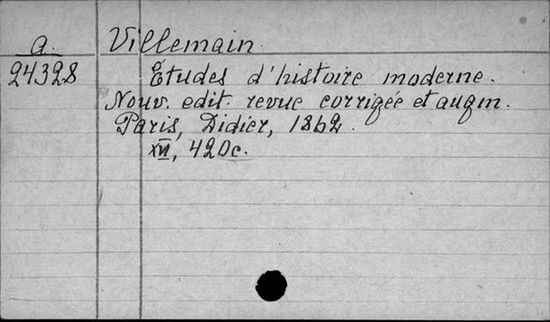 a. Villemain.
24328 Etudes d'histoire moderne.
Nouv. edit. revue corrigée et augm.
Paris, Didier, 1862.
XII, 420c.